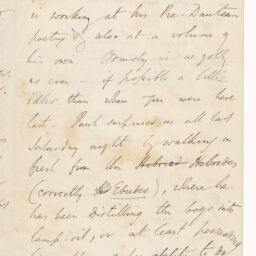 is working at his Pre-Dantean
poetry & also at a volume of
his own. Ormsby is as jolly
as ever – if possible a little
idler than when you were here
last. Paul surprised us all last
Saturday night by walking in
fresh from the Hebrid Hebrides,
(correctly Ebudes), where he
has been distilling the bogs into
lamp-oil, or at least persuading
ability to do